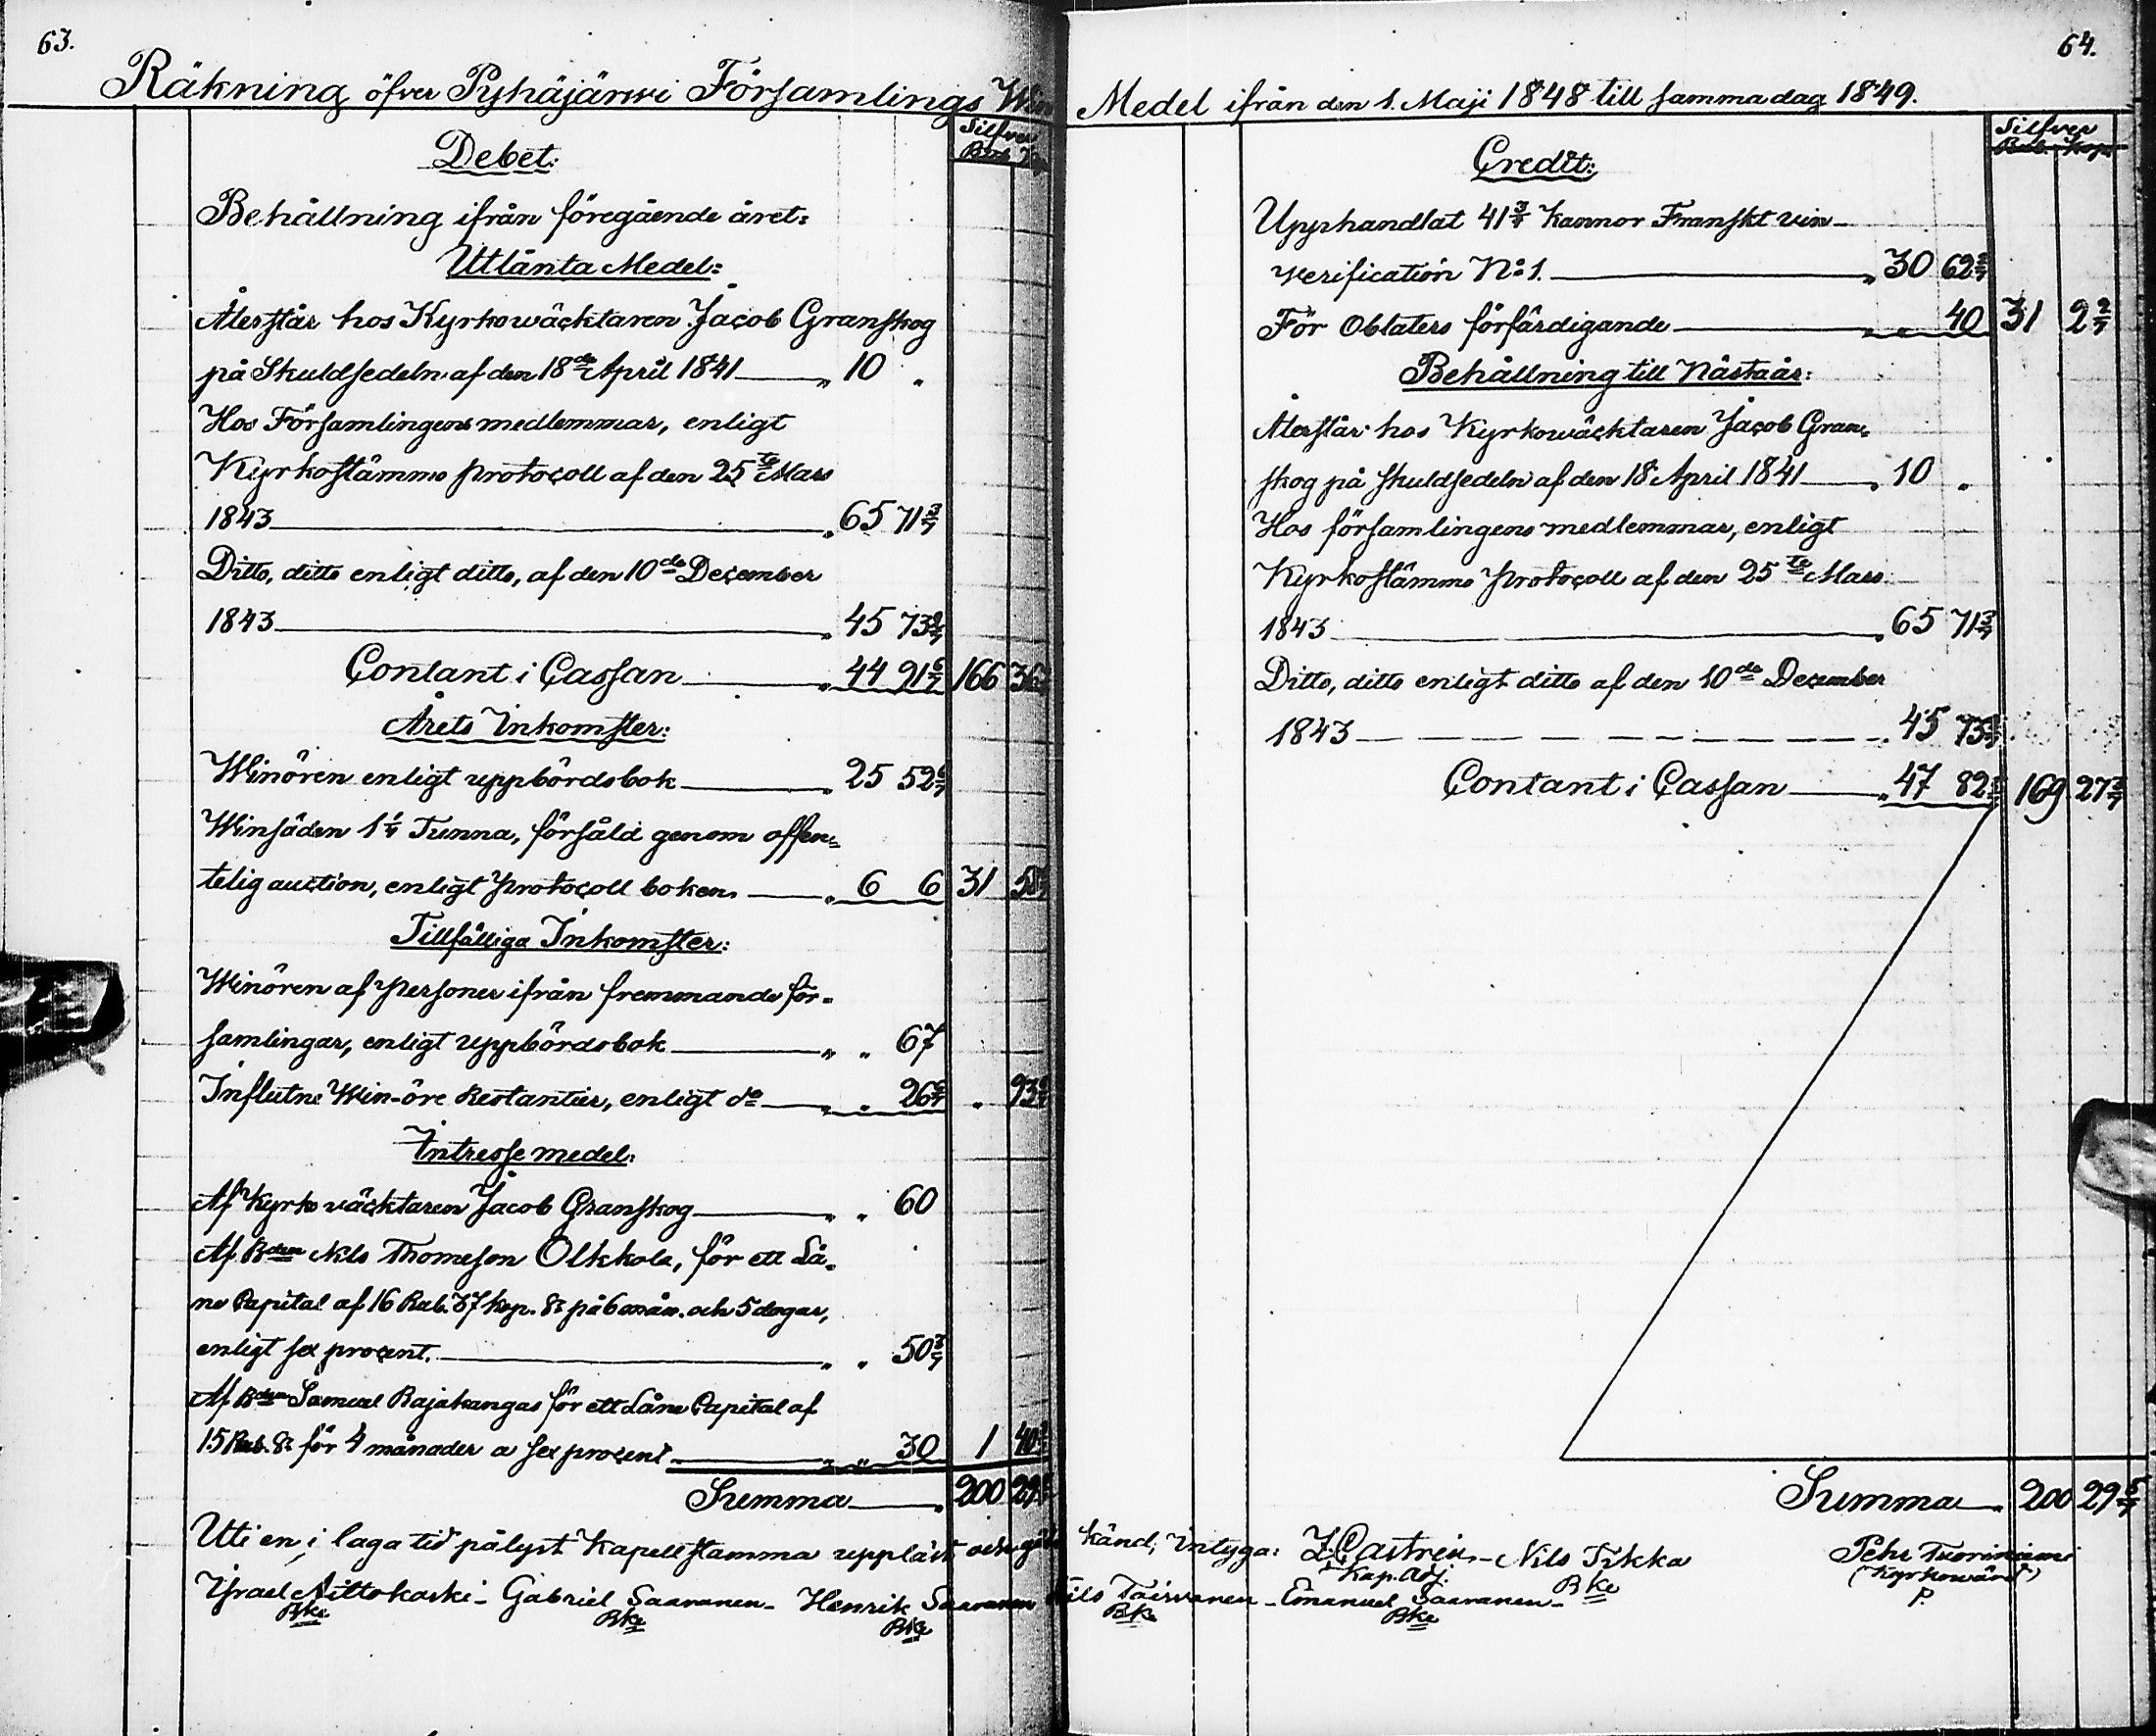 63.
Räkning öfver Pyhäjärwi Församlings
Silfver
Debet:
Behållning ifrån föregående året:
Utlånta Medel:
Återstår hos Kyrkowäcktaren Jacob Granskog
på Skuldsedeln af den 18de April 1841 „ 10 „
Hos Församlingens medlemmar, enligt
Kyrkostämmo protocoll af den 25te Mars
1843 „ 65 71 3/7
Ditto, ditto enligt ditto, af den 10de December
1843 „ 45 73 2/7
Contant i Cassan „ 44 91 6/7 166 36
Årets Inkomster:
Winören enligt uppbördsbok „ 25 52 6/7
Winsäden 1 1/4 Tunna, försåld genom offen=
telig auction, enligt protocoll boken „ 6 6 31 58
Tillfälliga Inkomster:
Winören af personer ifrån fremmande för=
samlingar, enligt uppbördsbok „ „ 67
Influtne Win-öre Restantier, enligt do „ „ 26 6/7 „ 93 6/7
Intresse medel:
Af Kyrkowäcktaren Jacob Granskog „ „ 60
Af Bden Nils Thomesson Olkkola, för ett Lå=
ne Capital af 16 Rub. 37 kop. Sr på 6 mån. och 5 dagar,
enligt sex procent. „ „ 50 3/7
Af Bden Samuel Rajakangas för ett Låne Capital af
15 Rub. Sr för 4 månader a sex procent „ „ 30 1 40 3/7
Summa „ 200 29
Uti en i laga tid pålyst Kapellstämma uppläst och
Israel Aittokoski - Gabriel Saaranen - Henrik Saaranen
Bke Bke Bke
64.
Medel ifrån den 1. Maji 1848 till samma dag 1849.
Silfver
Rub. Kop.
Credit:
Upphandlat 41 3/4 Kannor Franskt vin
verification No 1. „ 30 62 2/7
För Oblaters förfärdigande „ „ 40 31 2 2/7
Behållning till Nästa år:
Återstår hos Kyrkowäcktaren Jacob Gran=
skog på skuldsedeln af den 18 April 1841 „ 10 „
Hos församlingens medlemmar, enligt
Kyrkostämmo protocoll af den 25te Mars
1843 „ 65 71 3/7
Ditto, ditto enligt ditto af den 10de December
1843 „ 45 73 2/7
Contant i Cassan „ 47 82 169 27 3/7
Summa „ 200 29 5/7
känd, intyga: Z Castren - Nils Tikka Pehr Tuoriniemi
Kap. Adj. Bke (Kyrkowärd)
Nils Taivanen - Emanuel Saaranen - P.
Bke Bke